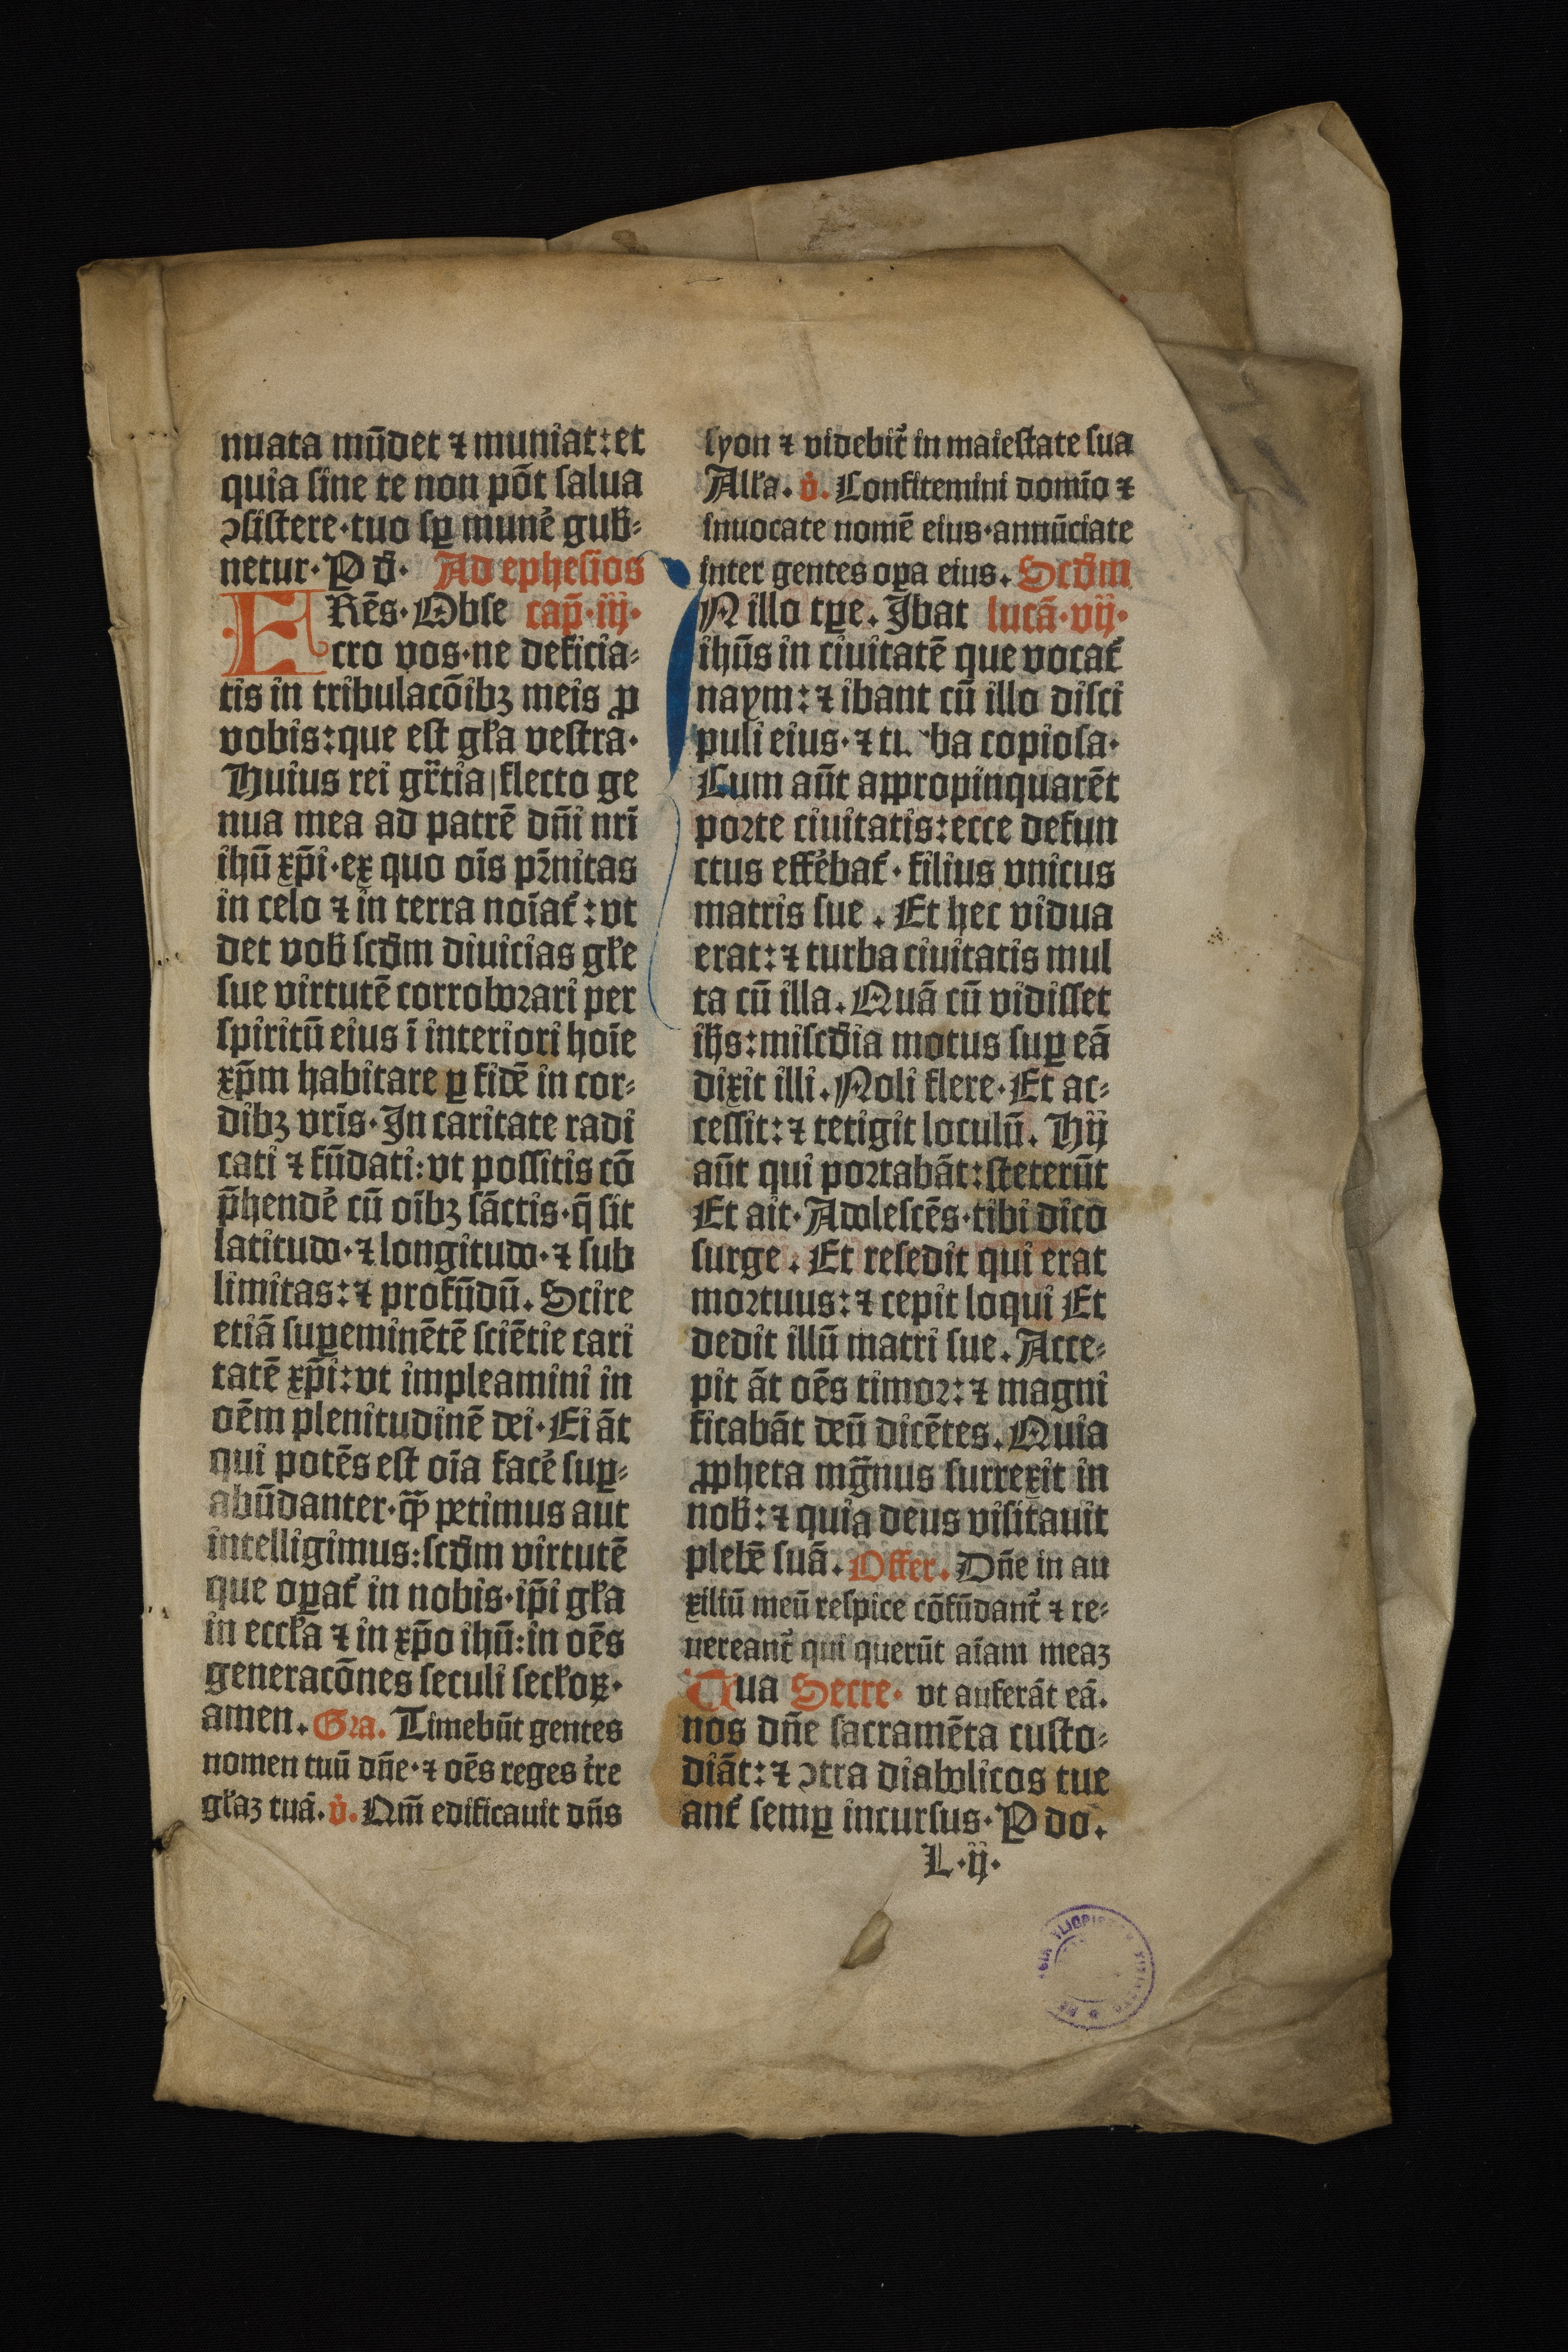 nuata mūdet ⁊ muniat:et
quia sine te non pōt salua
ↄsistere·tuo sꝑ munė gub̄⸗
netur·P d̄· Ad ephesios
ERēs·Obse cap̄·iij·
cro vos·ne deficia⸗
tis in tribulacōibꝫ meis ꝓ
vobis:que est gl̄a vestra·
Huius rei gr̄tia|flecto ge
nua mea ad patrē dn̄i nrī
ihū xp̄i·ex quo oīs pr̄nitas
in celo ⁊ in terra noīat᷑:vt
det vob̄ scd̄m diuicias gl̄e
sue virtutē corroborari per
spiritū eius ī interiori hoīe
xp̄m habitare ꝑ fidē in cor⸗
dibꝫ vrīs·In caritate radi
cati ⁊ fūdati:vt possitis cō
p̄hendė cū oībꝫ sāctis·q̄ sit
latitudo·⁊ longitudo·⁊ sub
limitas:⁊ profūdū. Scire
etiā suꝑeminētē sciētie cari
tatē xp̄i:vt impleamini in
oēm plenitudinē dei·Ei āt
qui potēs est oīa facė suꝑ⸗
abūdanter·qꝫ̄ petimus aut
intelligimus:scd̄m virtutē
que oꝑat᷑ in nobis·ip̄i gl̄a
in eccl̄a ⁊ in xp̄o ihū:in oēs
generacōnes seculi secl̄oꝝ·
amen. Gra. Timebūt gentes
nomen tuū dn̄e·⁊ oēs reges t̄re
gl̄aꝫ tuā. v̇. Qm̄ edificauit dn̄s
syon ⁊ videbit᷑ in maiestate sua
All̄a. v̇. Confitemini domīo ⁊
inuocate nomē eius·annūciate
inter gentes oꝑa eius. Scd̄m
IN illo tꝑe. Ibat lucā·vij·
ihūs in ciuitatē que vocat᷑
naym:⁊ ibant cū illo disci
puli eius·⁊ tu ba copiosa·
Cum aūt appropinquarēt
porte ciuitatis:ecce defun
ctus effėbat᷑·filius vnicus
matris sue. Et hec vidua
erat:⁊ turba ciuitatis mul
ta cū illa. Quā cū vidisset
ih̄s:misc̄dia motus suꝑ eā
dixit illi. Noli flere·Et ac⸗
cessit:⁊ tetigit loculū. Hij
aūt qui portabāt:steterūt
Et ait·Adolescēs·tibi dico
surge. Et resedit qui erat
mortuus:⁊ cepit loqui Et
dedit illū matri sue. Acce⸗
pit āt oēs timor:⁊ magni
ficabāt deū dicētes. Quia
ꝓpheta mḡnus surrexit in
nob̄:⁊ quia deus visitauit
plebē suā. Offer. Dn̄e in au
xiliū meū respice cōfūdant᷑ ⁊ re⸗
uereant᷑ qui querūt aīam meaꝫ
Tua Secre. vt auferāt eā.
nos dn̄e sacramēta custo⸗
diāt:⁊ ↄtra diabolicos tue
ant᷑ semꝑ incursus·P do.
L·ij·